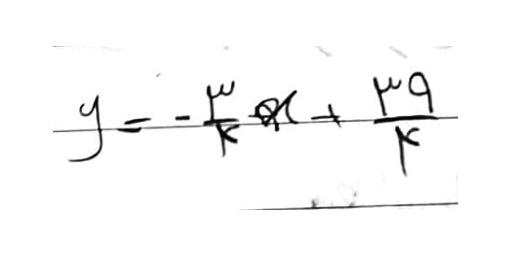 y = -۳/۴ x + ۳۹/۴